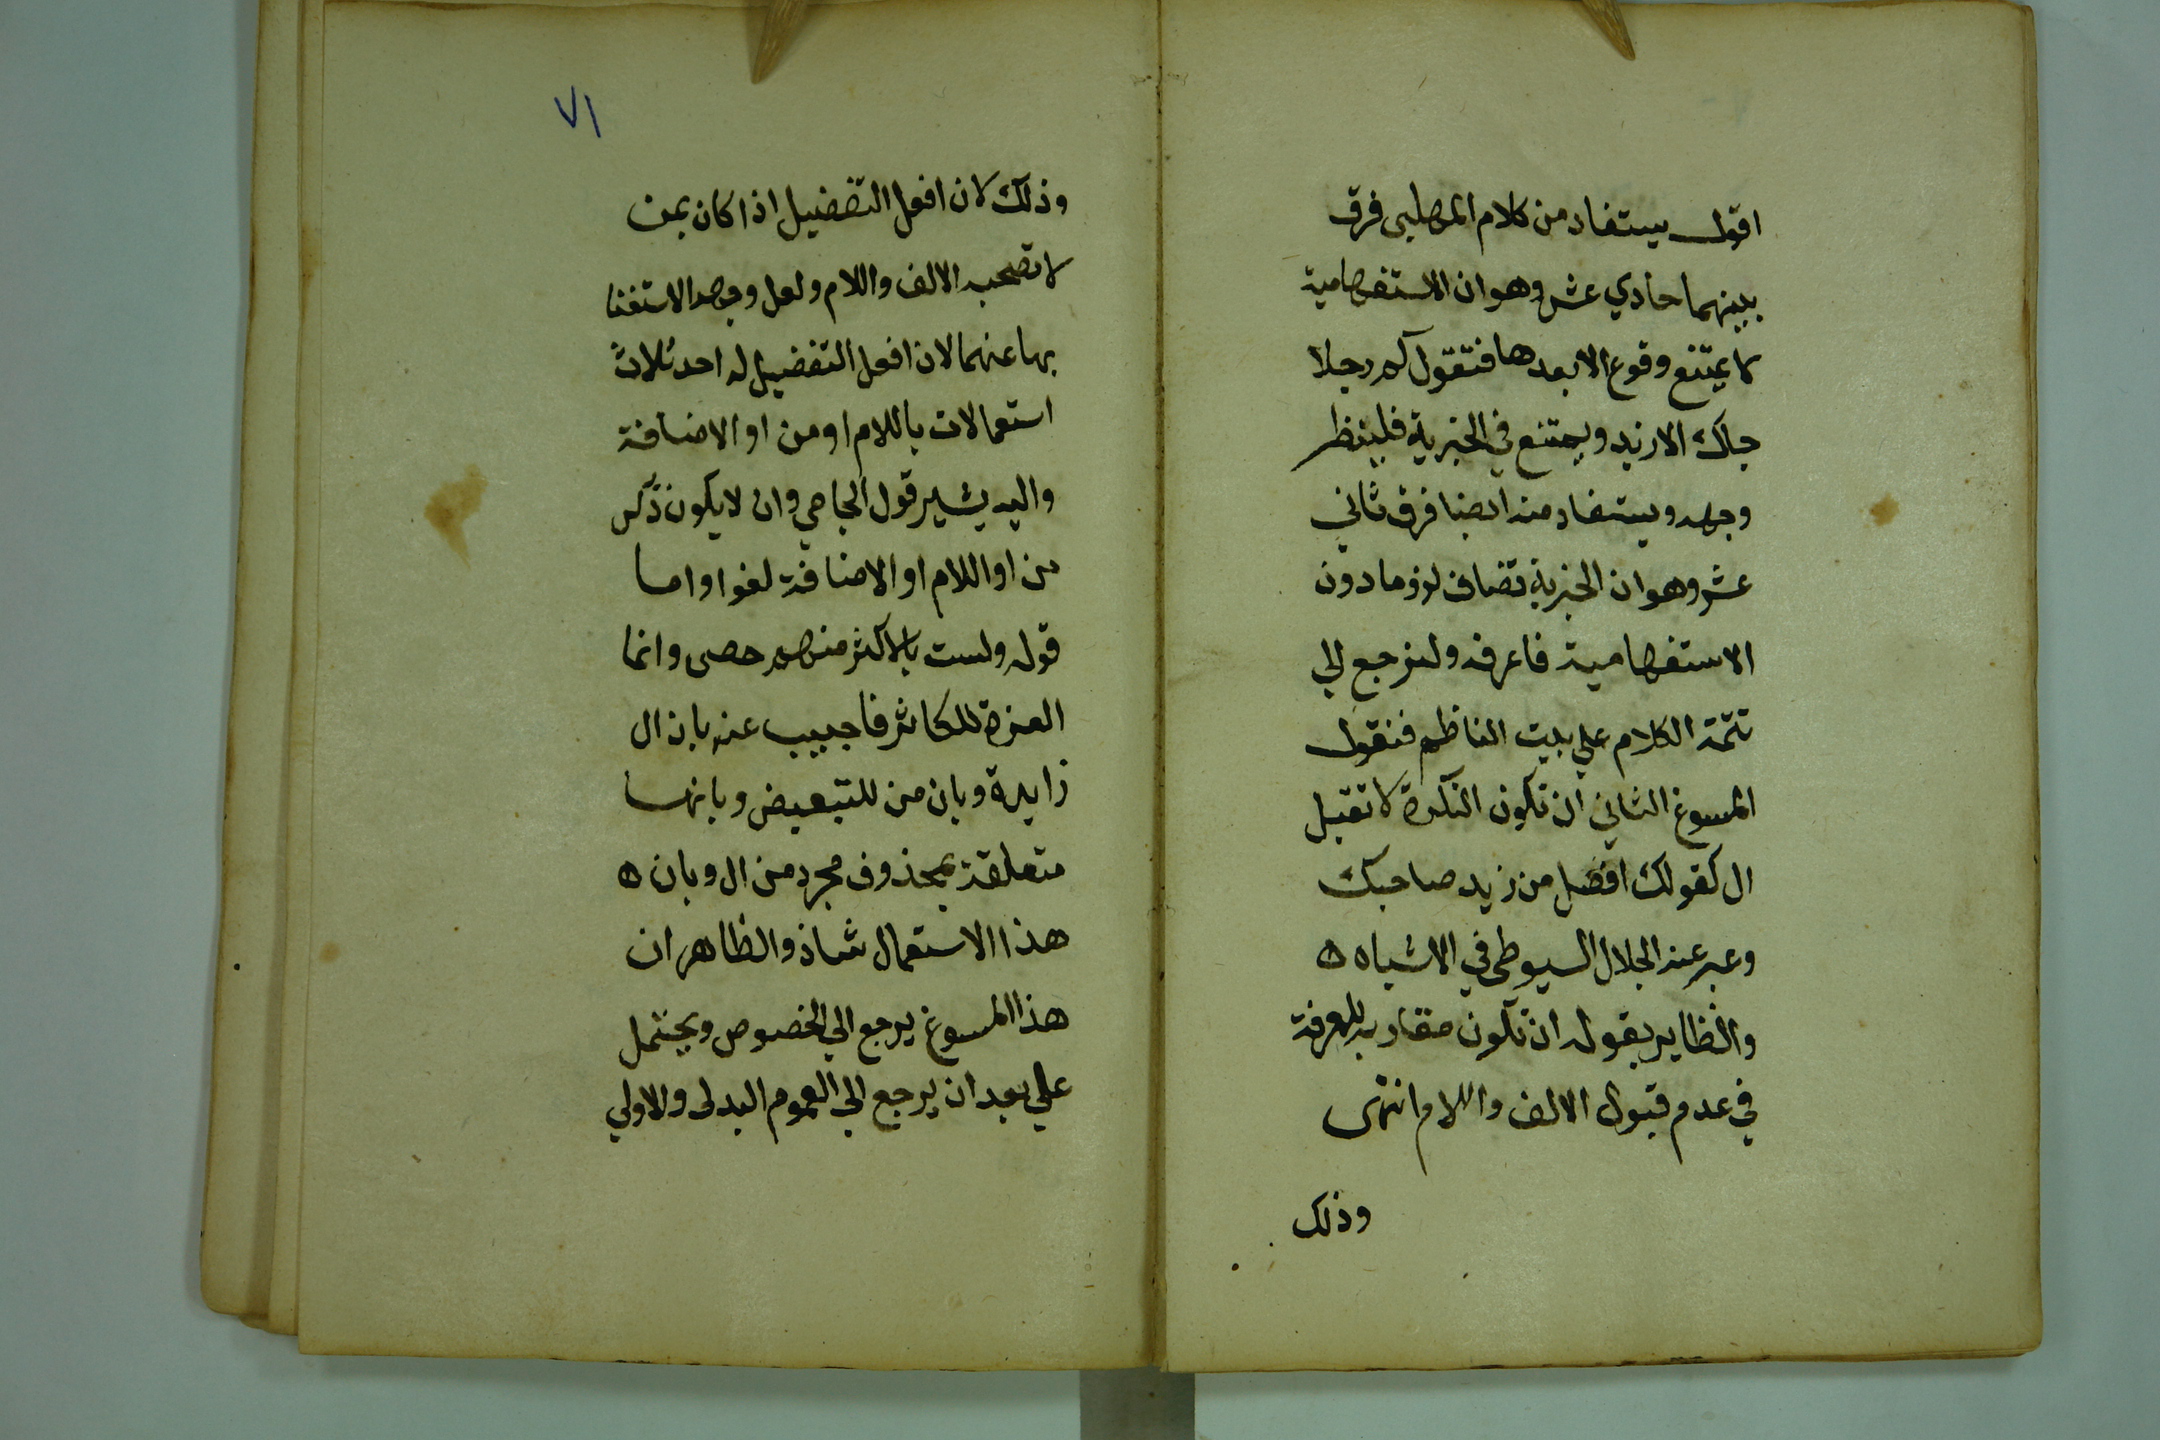 اقول يستفاد من كلام المهلبى فرق
بينهما حادي عشر وهو ان الاستفهامية
لا يمتنع وقوع الا بعدها فتقول كم رجلا
جاك الا زيد ويمتنع في الخبرية فلينظر
وجهه ويستفاد منه ايضا فرق ثاني
عشر وهو ان الخبرية تضاف لزوما دون
الاستفهامية فاعرفه ولنرجع الي
تتمة الكلام علي بيت الناظم فنقول
المسوغ الثاني ان تكون النكرة لا تقبل
ال كقولك افضل من زيد صاحبك
وعبر عنه الجلال السيوطى في الاشباه ه
والنظاير بقوله ان تكون مقاربه للمعرفة
في عدم قبول الالف واللام انتهى
وذلك
٧١
وذلك لان افعل التفضيل اذا كان بمن
لا تصحبه الالف واللام ولعل وجهه الاستغنا
بها عنهما لان افعل التفضيل له احد ثلاث
استعمالات باللام او من او الاضافة
واليه يشير قول الجامي وان لا يكون ذكر
من او اللام او الاضافة لغوا واما
قوله ولست بالاكثر منهم حصى وانما
العزة للكاثر فاجيب عنه بان ال
زايدة وبان من للتبعيض وبانها
متعلقة بمحذوف مجرد من ال وبان ه
هذا الاستعمال شاذ والظاهر ان
هذا المسوغ يرجع الي الخصوص ويحتمل
علي بعد ان يرجع الي العموم البدلى والاولي